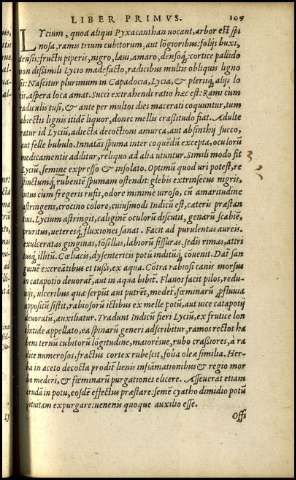 LIBER PRIMVS. 109
LYcium, quod aliqui Pyxacanthan uocant, arbor est spi
nosa, ramis trium cubitorum, aut longioribus: folijs buxi,
densis: fructu piperis, nigro, læui, amaro, densoq́;: cortice pallido
non dissimili Lycio madefacto, radicibus multis obliquis ligno
sis: Nascitur plurimum in Capadocia, Lycia, & plerisq́; alijs lo
cis, aspera loca amat. Succi extrahendi ratio hæc est: Rami cum
radicibus tusi, & ante per multos dies macerati coquuntur, tum
abiectis lignis itidē liquor, donec mellis crassitudo fiat. Adulte
ratur id Lyciū, adiecta decoctioni amurca, aut absinthij succo,
aut felle bubulo. Innatās spuma inter coquēdū excepta, oculorū
medicamentis additur, reliquo ad alia utuntur. Simili modo fit
Lyciū, semine expresso & insolato. Optimū quod uri potest, re
stinctumq́; rubentē spumam ostendit: glebis extrinsecus nigris,
intus cum fregeris rufis, odore minime uiroso, cū amaritudine
astringente, croceino colore, cuiusmodi Indicū est, cæteris præstan
tius. Lycium astringit, caliginē oculorū discutit, genarū scabiē,
pruritus, ueteresq́; fluxiones sanat. Facit ad purulentas aureis.
exulceratas gingiuas, tōsillas, labiorū fissuras, sedis rimas, attri
tusq́; illitū. Cœliacis, dysentericis potū inditūq́; conuenit. Dāt san
guinē excreātibus et tussi, ex aqua. Cōtra rabiosi canis morsus
in catapotio deuorāt, aut in aqua bibūt. Flauos facit pilos, redu
uijs, ulceribus quæ serpūt aut putrēt, medet, fœminarū profluuia
appositū sistit, rabiosorū ictibus ex melle potū, aut uice catapotij
deuoratū, auxiliatur. Tradunt Indicū fieri Lyciū, ex frutice lon
chitide appellato, ea spinarū generi adscribitur, ramos rectos ha
bens ternū cubitorū lōgitudine, maioresue, rubo crassiores, à ra
dice numerosos, fractus cortex rubescit, folia oleæ similia. Her
ba in aceto decocta prodit lienis inflāmationibus & regio mor
bo mederi, & fœminarū purgationes elicere. Asseuerāt etiam
crudā in potu, eosdē effectus præstare: semē cyatho dimidio potū
pituitam expurgare: uenenis quoque auxilio esse.
Offi